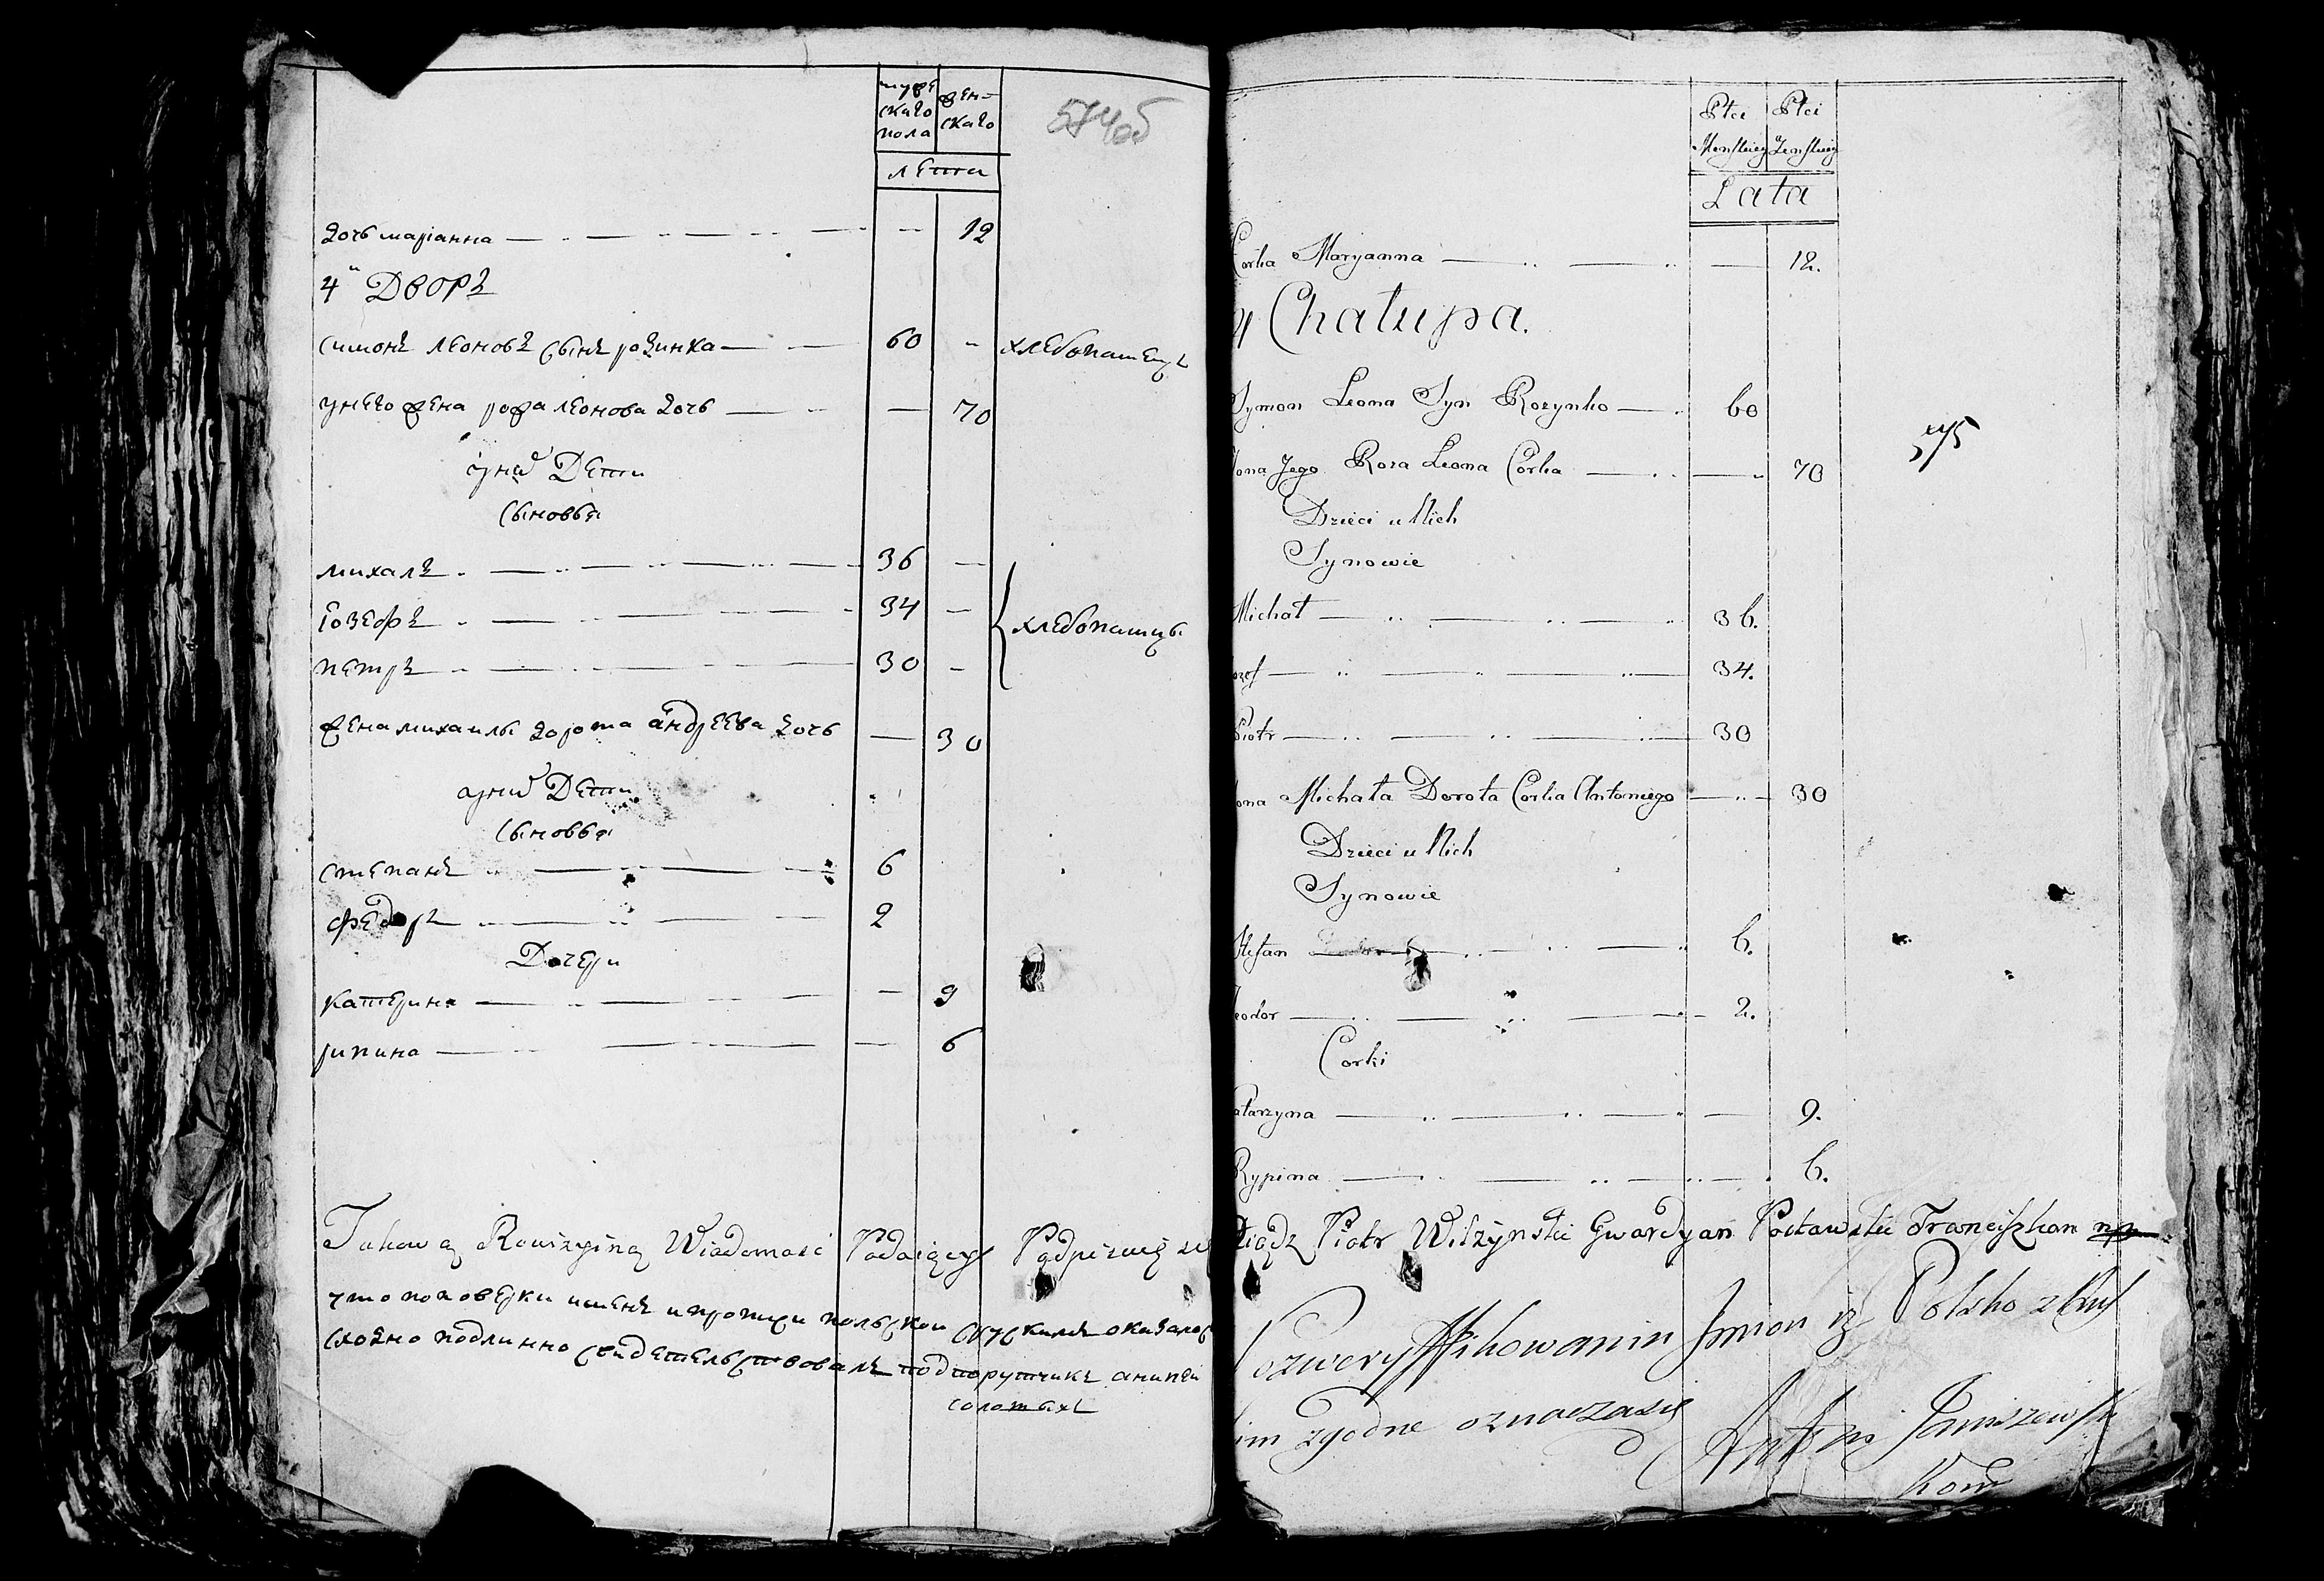 мужескаго пола
женскаго
574об
лета
дочь марiанна 12
4й Дворъ
симонъ леоновъ сынъ розинка 60 хлебопашецъ
унего жена рожа леонова дочь 70
Дети
сыновья
михалъ 36
iозефъ 34
хлебопашцы
петръ 30
жена михаилы дорота андреева дочь 30
Дети
сыновья
степанъ 6
федоръ 2
Дочери
катерина 9
рипина 6
Takową Rewizyiną Wiadomość Podaiący Podpisuię się
что поповерки именъ и протчи польской сруским оказалос
схожно подлинно свидетельствовалъ подпорутчикъ
Płci Męskiey
Płci Żeńskiey
Lata
Corka Maryanna 12.
4 Chałupa.
Symon Leona Syn Rozynko 60
575
Żona Jego Roza Leona Corka 70
Dzieci u Nich
Synowie
Michał 36.
Jozef 34.
Piotr 30
Żona Michała Dorota Corka Antoniego 30
Dzieci u Nich
Synowie
Stefan 6.
Teodor 2.
Corki
Katarzyna 9.
Rypina 6.
Xiądz Piotr Wilzynski Gwardyan Połtawski Franciszkan
Po zweryffikowaniu Imion iż Polsko z Rus
kim zgodne oznacza się
Antoni Janiszewski
Kom